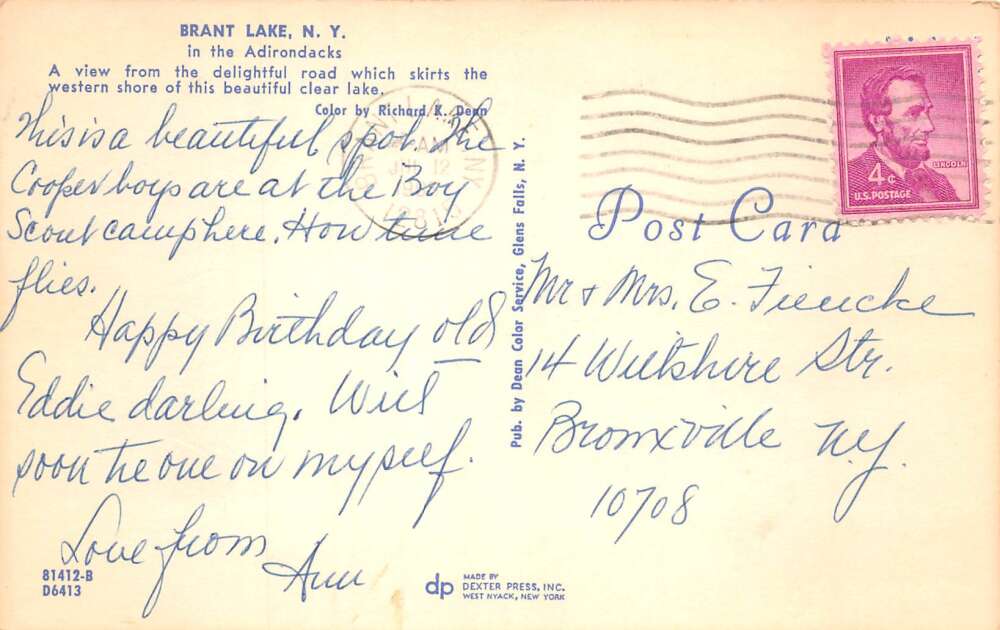 BRANT LAKE, N. Y.
in the Adirondacks
A view from the delightful road which skirts the
western shore of this beautiful clear lake.
Color by Richard K. Dean
This is a beautiful spot. The
Cooper boys are at the Boy
Scout camp here. How time
flies.
Happy Birthday old
Eddie darling. Will
soon tie one on myself.
Love from
Ann
81412-B
D6413
Pub. by Dean Color Service, Glens Falls, N. Y.
dp
MADE BY
DEXTER PRESS, INC.
WEST NYACK, NEW YORK
BRANT LAKE NY
AM
JUL 12
12815
LINCOLN
4¢
U.S. POSTAGE
Post Card
Mr & Mrs. E. Fiencke
14 Wiltshire Str.
Bronxville N.Y.
10708